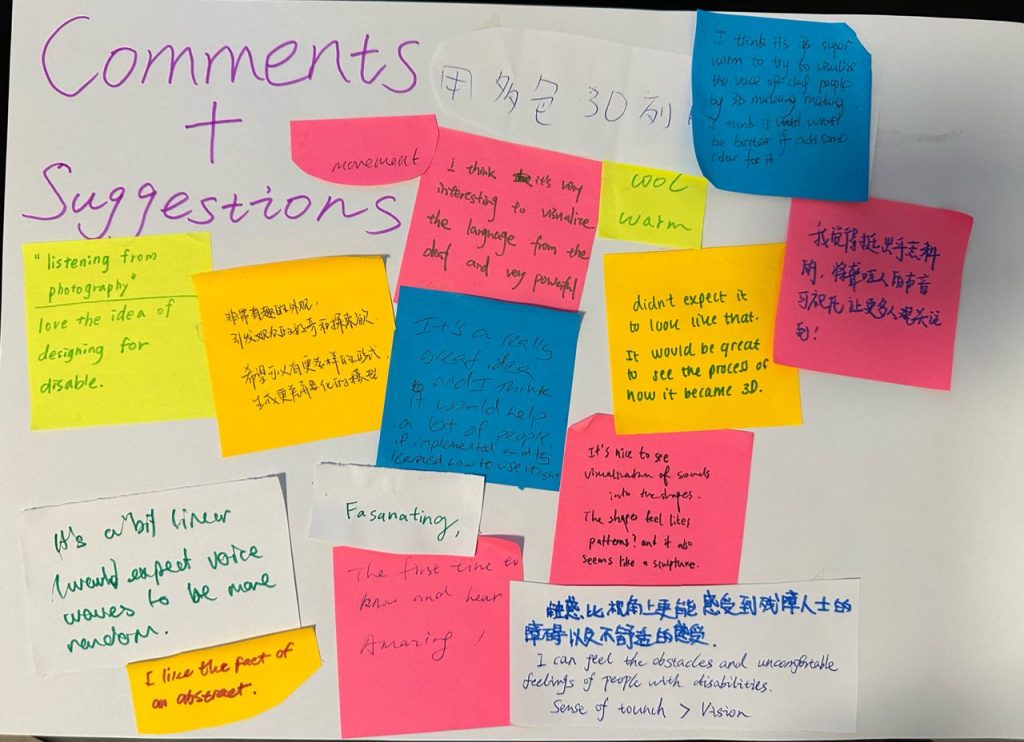 Comments
+
Suggestions
用多色 3D 列
movement
I think it's very
interesting to visualize
the language from the
deaf and very powerful
cool
warm
I think it's is super
warm to try to visulize
the voice of deaf people
by 3D making.
I think it would
be better if add some
color for it
我觉得挺出乎意料
的，将聋哑人的声音
可视化让更多人
到！
"listening from
photography"
love the idea of
designing for
disable.
非常有趣的外观，
引发观众的好奇和探索欲
希望可以有更多样的形式
生成更有变化的模型
It's a really
great idea
and I think
it would help
a lot of people,
if implemented and they
learned how to use it right
didn't expect it
to look like that.
It would be great
to see the process of
how it became 3D.
It's nice to see
visualisation of sounds
into the shapes.
The shapes feel likes
patterns? and it also
seems like a sculpture.
It's a bit linear
I would expect voice
waves to be more
random.
Fasanating,
The first time to
know and hear
Amazing!
I like the fact of
an abstract.
触感比视角上更能感受到残障人士的
障碍以及不舒适的感受.
I can feel the obstacles and uncomfortable
feelings of people with disabilities.
Sense of tounch > Vision